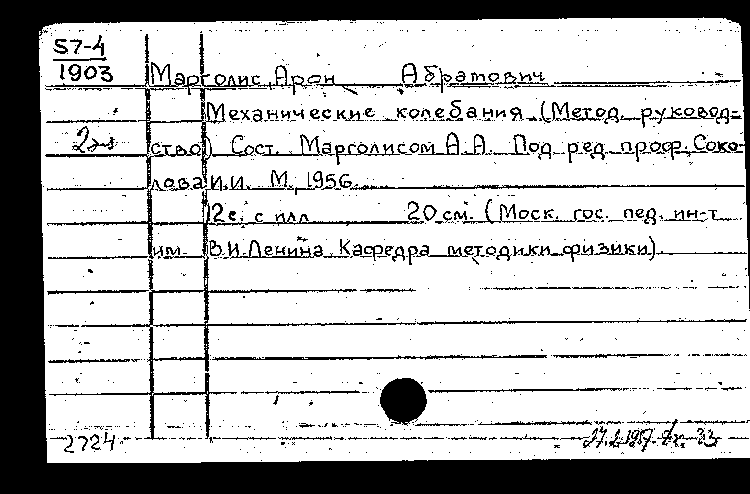 57-4
1903
Марголис, Арон Абрамович
Механические колебания. (Метод. руковод-
2экз
ство) Сост. Марголисом А.А. Под ред. проф. Соко-
лова И.И. М., 1956.
12с. с илл. 20 см. (Моск. гос. пед. ин-т
им. В.И.Ленина. Кафедра методики физики).
2724